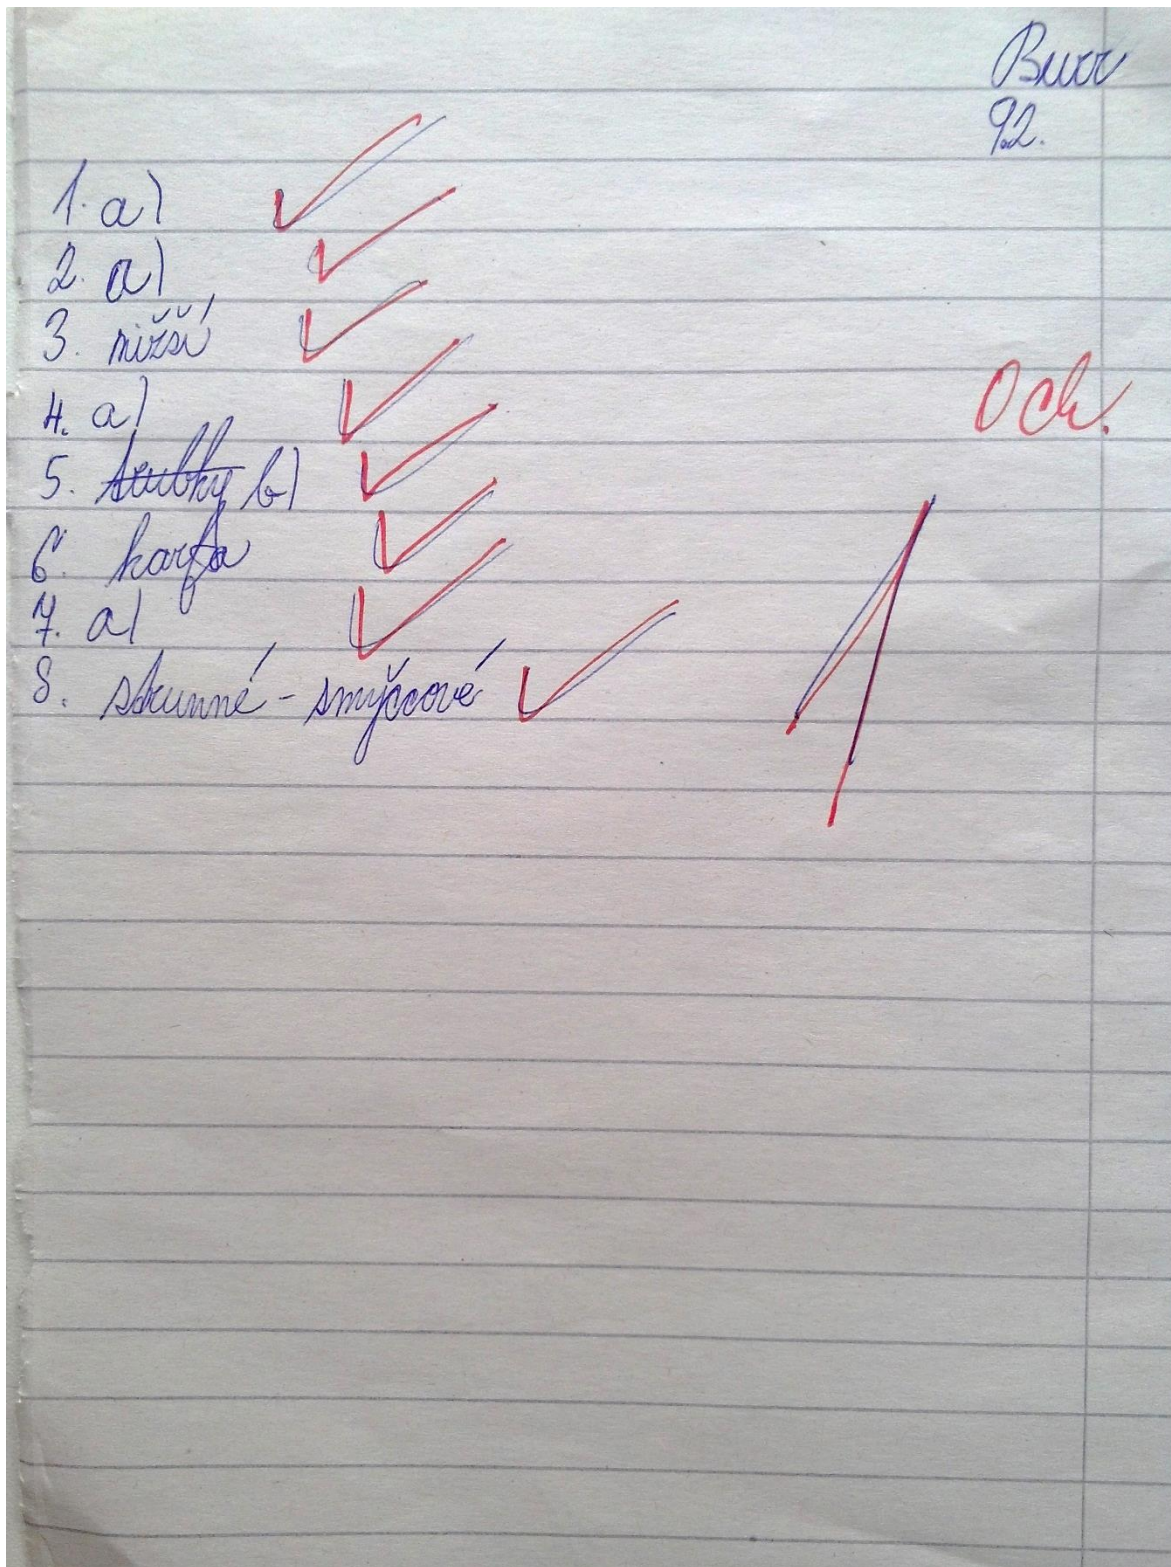 Burr
9.2.
1. a)
2. a)
3. nižší
4. a)
5. trubky b)
6. harfa
7. a)
8. strunné - smyčcové
0 ch.
1